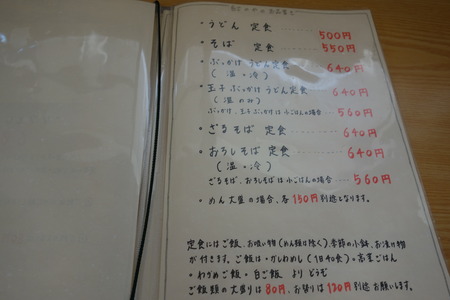 ・うどん 定食 ……… 500円
・そば 定食 ……… 550円
・ぶっかけ うどん定食 …… 640円
(温・冷)
・玉子 ぶっかけ うどん定食 …… 640円
(温のみ)
ぶっかけ、玉子ぶっかけは小ごはんの場合 … 560円
・ざるそば 定食 ……… 640円
・おろしそば 定食 ……… 640円
(温・冷)
ざるそば、おろしそばは小ごはんの場合 …… 560円
・めん大盛の場合、各150円別途となります。
定食にはご飯、お吸い物(めん類は除く)、季節の小鉢、お漬け物
が付きます。ご飯は・かしわめし(1日40食)
・わかめご飯・白ご飯 より どうぞ
ご飯類の大盛りは80円、お替りは120円別途お願いします。